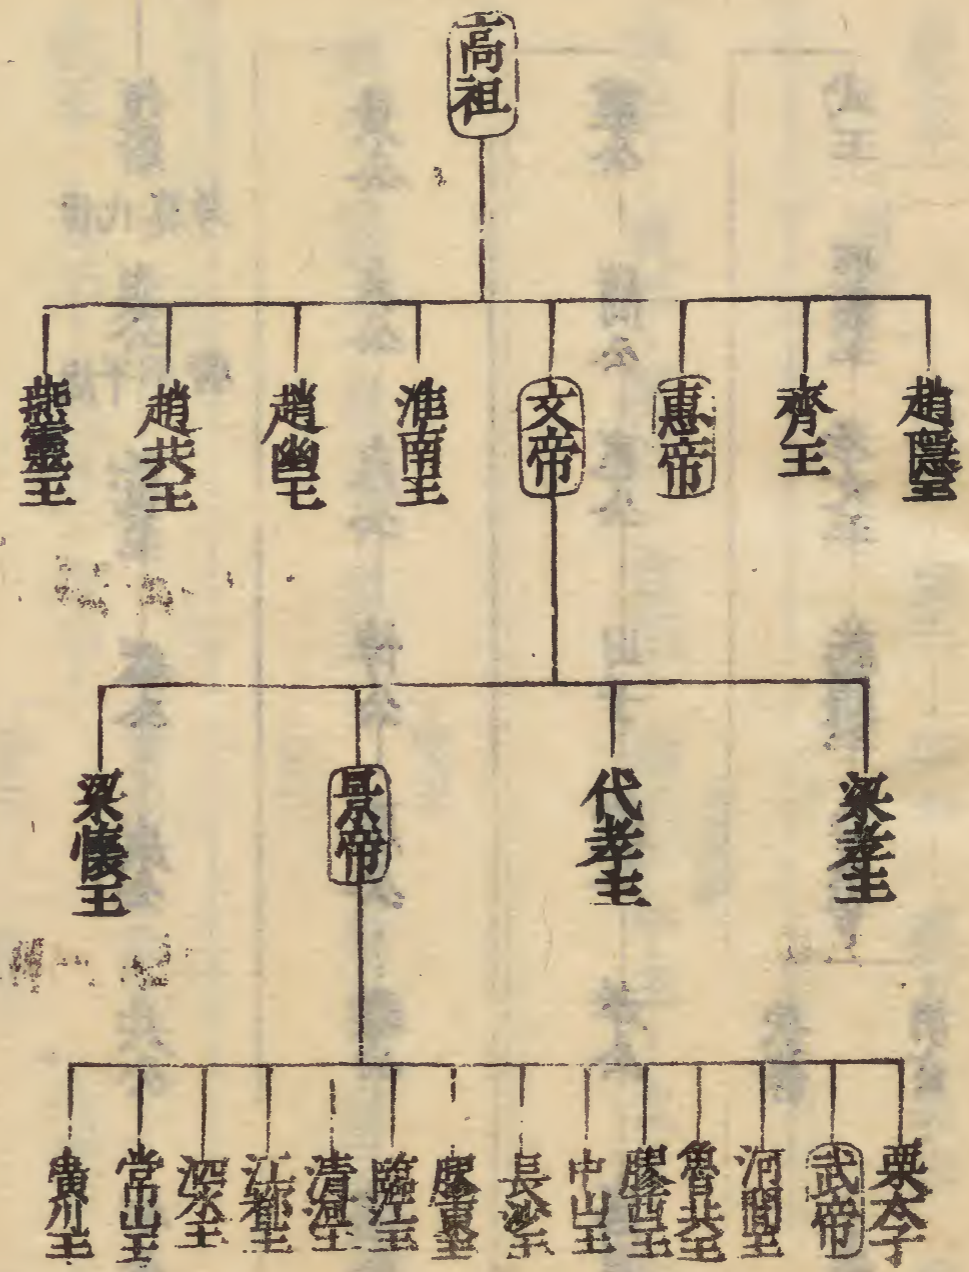 高祖
趙隱王
齊王
惠帝
文帝
淮南王
趙幽王
趙共王
燕靈王
梁孝王
代孝王
景帝
梁懷王
栗太子
武帝
河間王
魯共王
膠西王
中山王
長沙王
膠東王
臨江王
清河王
江都王
常山王